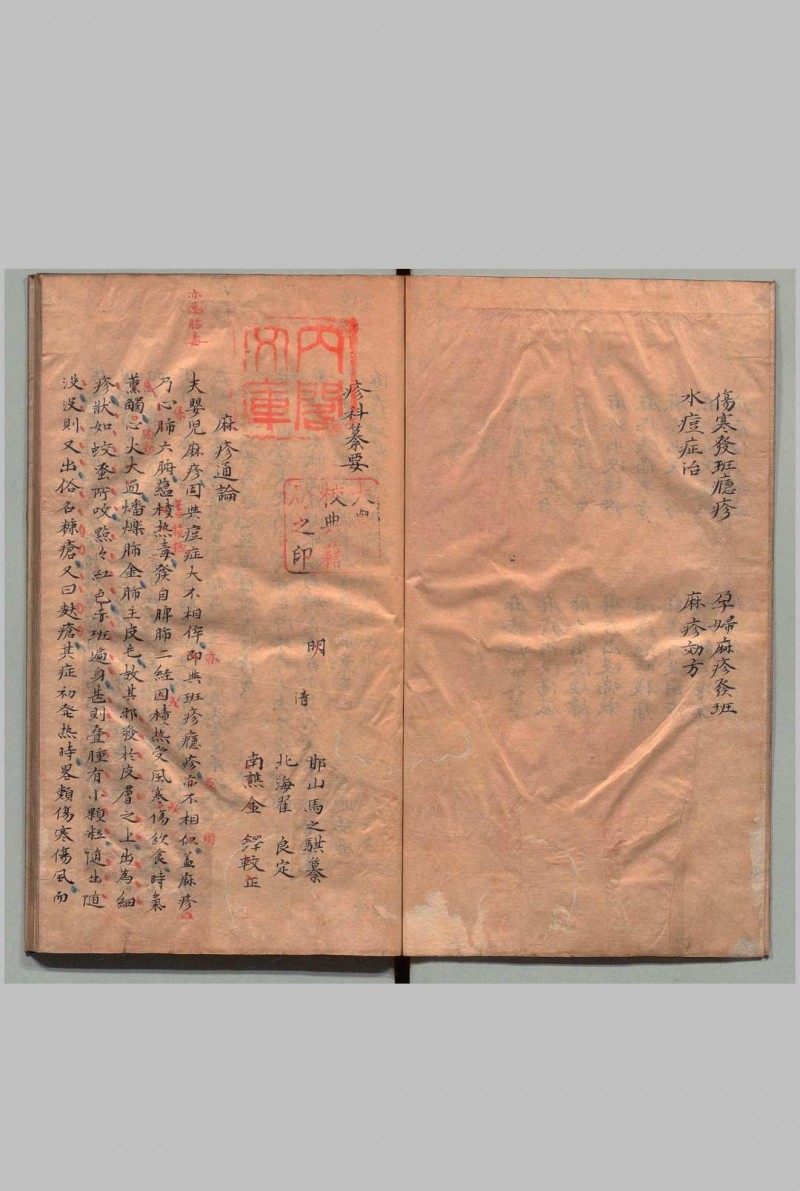 傷寒發班癮疹　孕婦麻疹發班
水痘症治　麻疹効方
疹科纂要
內閣文庫
之印
明　邯山馬之騏纂
清　北海翟　良定
南譙金　鐸較正
麻疹通論
夫嬰児麻疹固與痘症大不相侔即與班疹癮疹亦不相似盖麻疹
乃心肺六腑蘊積熱毒發自脾肺二経因積熱受風寒傷飲食時氣
薫觸心火大過燔爍肺金肺主皮毛故其邪發於皮膚之上出為細
疹狀如蚊蚤所咬點々紅色赤班遍身甚則疊腫有小顆粒随出随
没没則又出俗名糠瘡又曰麩瘡其症初発热時畧類傷寒傷風而